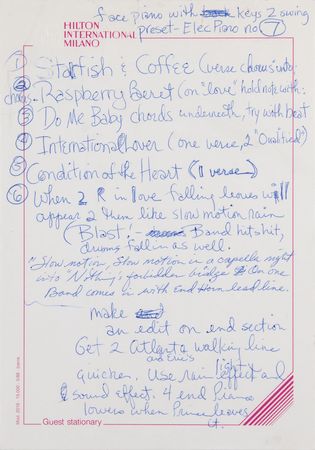 face piano with keys 2 swing
HILTON
INTERNATIONAL
MILANO
preset - Elec Piano no 7
1 Starfish & Coffee (verse chorus) into:
2 chorus - Raspberry Beret (on "love" hold note with:
3 Do Me Baby chords underneath, try with beat
4 International Lover (one verse, 2 "Qualified")
5 Condition of the Heart (1 verse)
6 When 2 R in love falling leaves will
appear 2 then like slow motion rain
(Blast! - Band hits hit,
drums fall in as well.
"Slow motion, Slow motion in a capella night
into "Nothing's forbidden bridge on one
Band comes in with End Horn lead line.
make
an edit on end section
Get 2 Atlanta walking line
and Eric's
quicker. Use rain light effect and
sound effect. 4 end Piano
lowers when Prince leaves
it.
Guest stationary